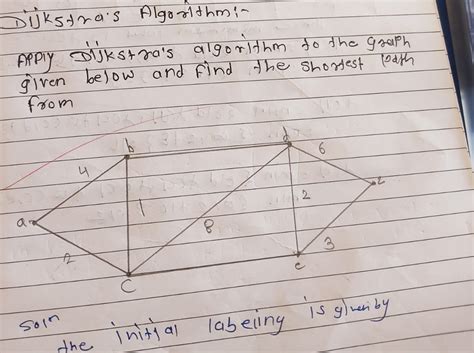 Dijkstra's Algorithm:-
Apply Dijkstra's algorithm to the graph
given below and find the shortest path
from
b
d
6
4
z
a
1
8
2
2
3
e
C
Soln
the initial labeling is given by